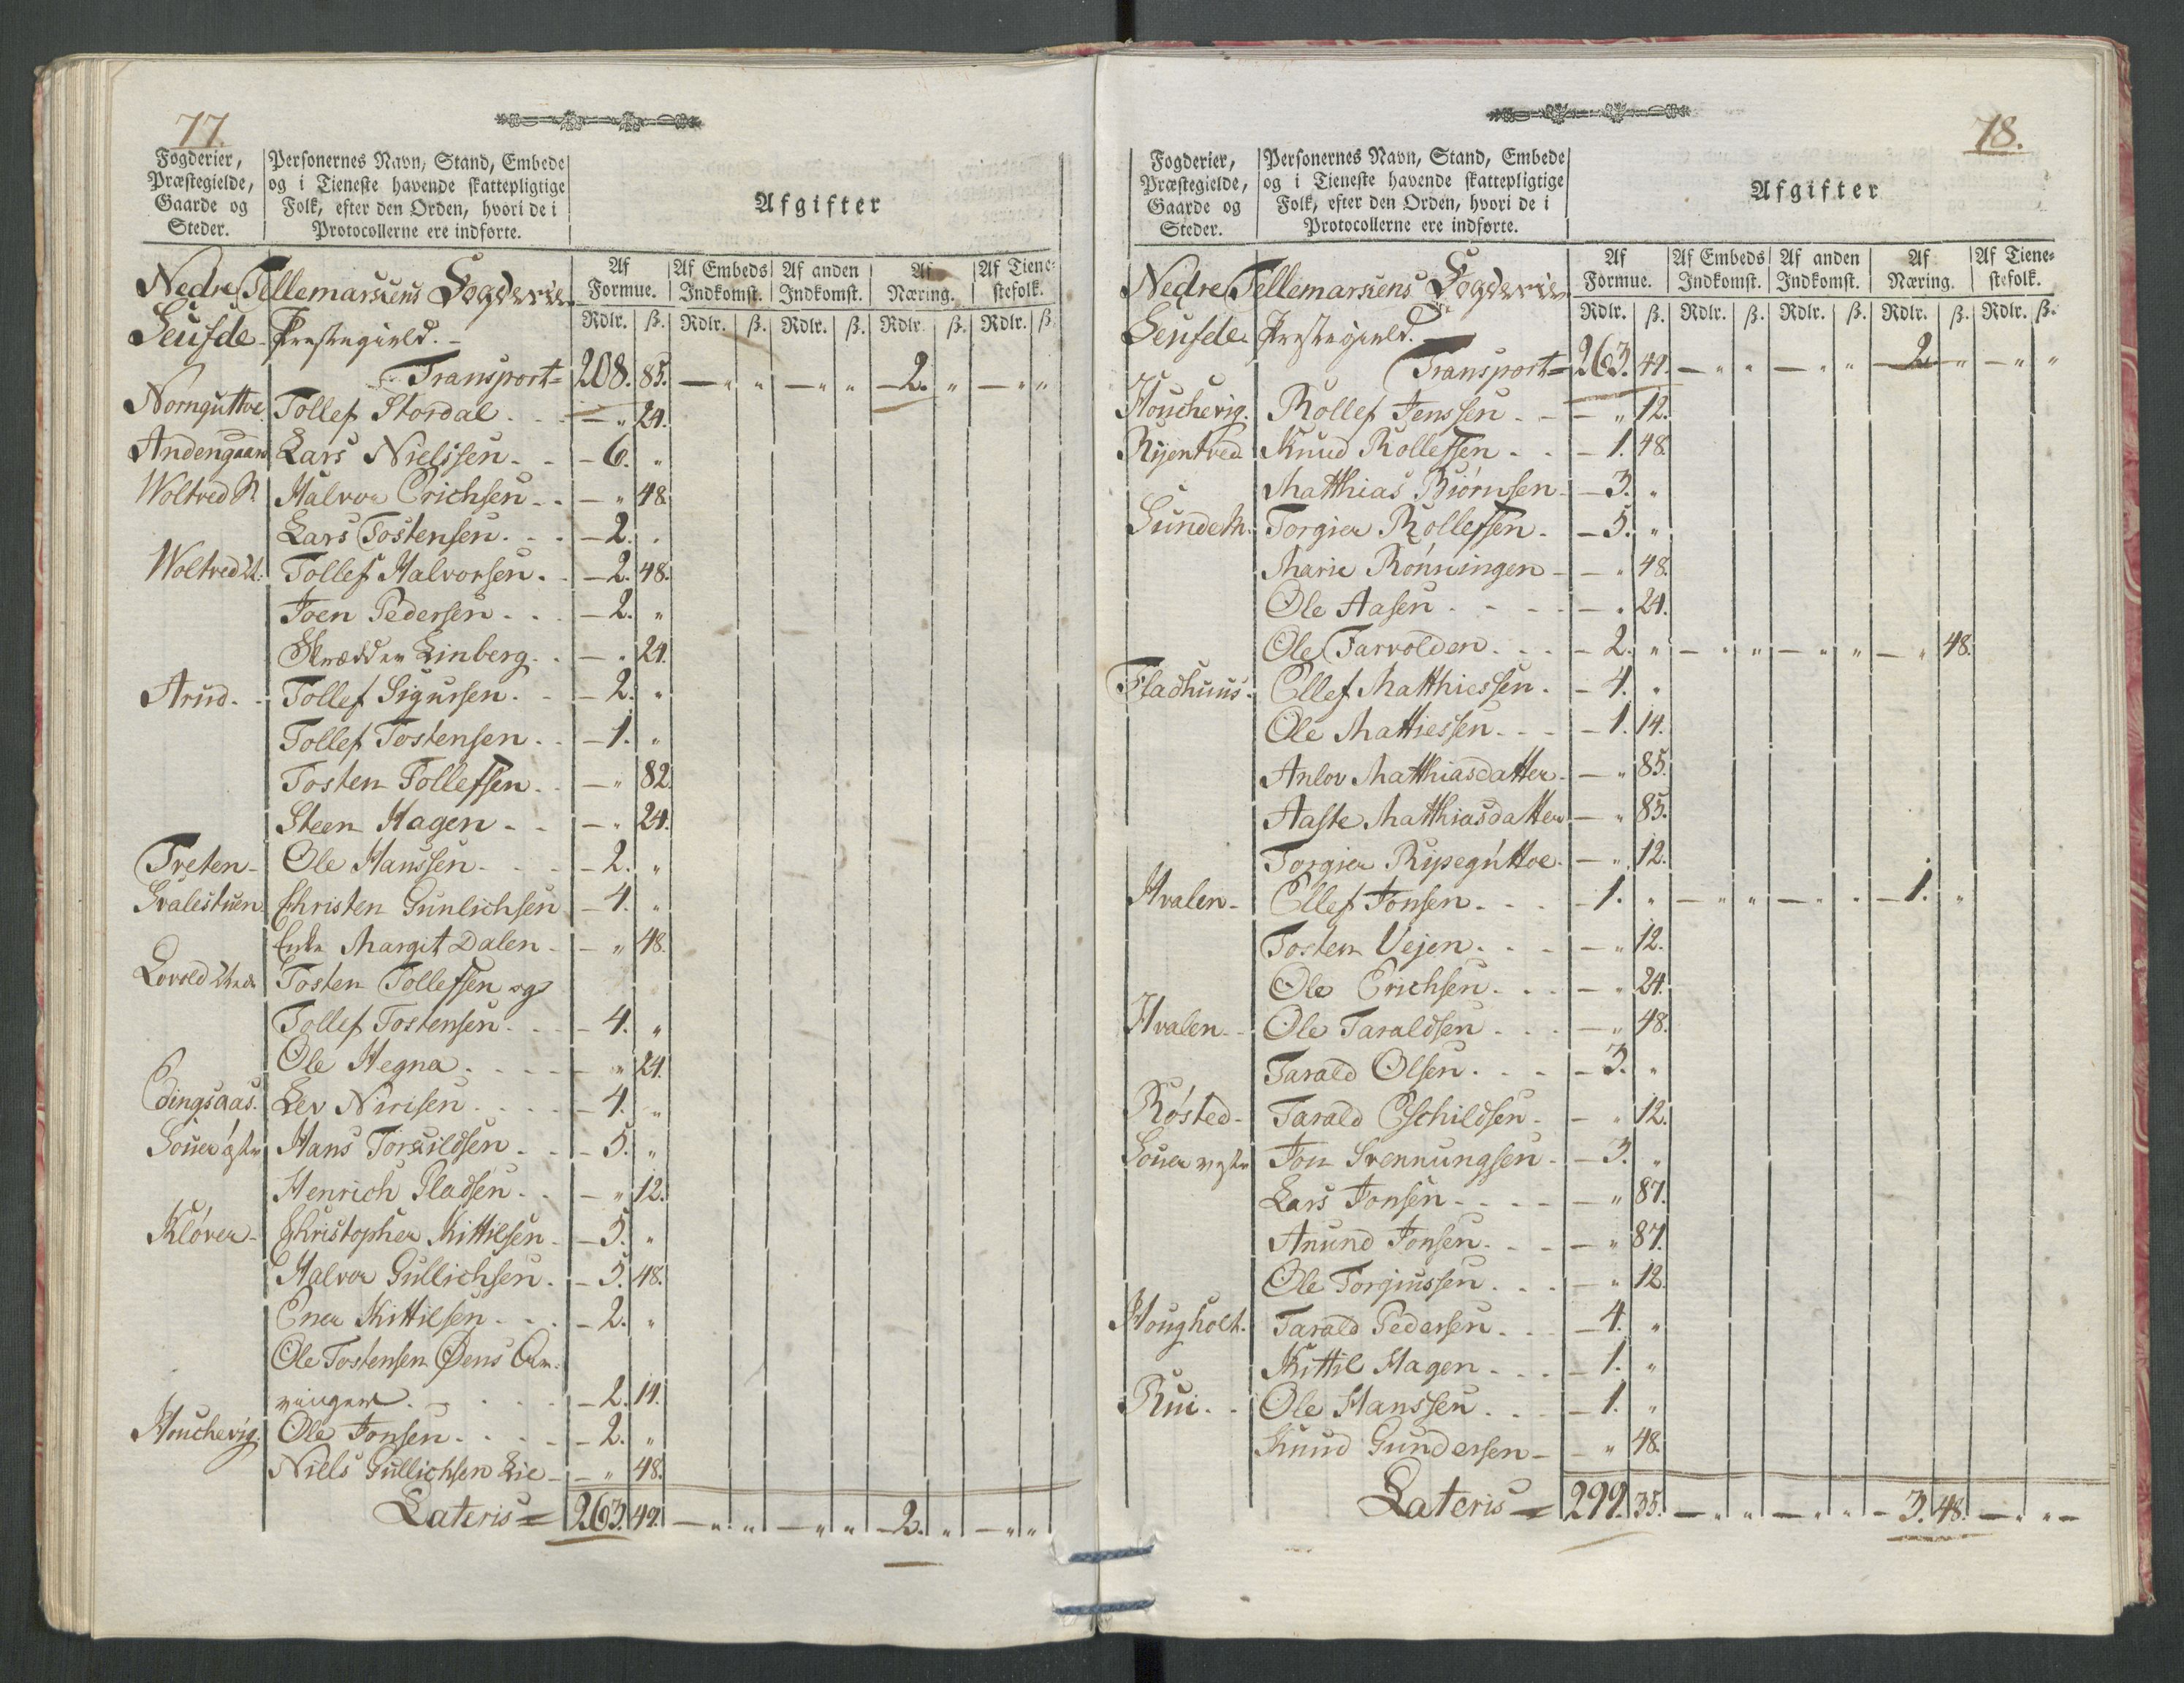 77.
Fogderier, Præstegielde, Gaarde og Steder.
Personernes Navn, Stand, Embede og i Tieneste havende skattepligtige Folk, efter den Orden, hvori de i Protocollerne ere indførte.
Afgifter
Af Formue. Af Embeds Indkomst. Af anden Indkomst. Af Næring. Af Tiene-stefolk.
Rdlr. ß. Rdlr. ß. Rdlr. ß. Rdlr. ß. Rdlr. ß.
Nedre Tellemarkens Fogderie
Seufde Præstegield.
Transport = 208. 85. — " " — " " — 2. " — " "
Nornguttve Tollef Stordal. — " 24.
Andengaard Lars Nielssen - — 6. "
Woltved N. Halvor Erichsen - — " 48.
Lars Tostensen. — 2. "
Woltved U. Tollef Halvorsen. — 2. 48.
Joen Pedersen. — 2. "
Skrædder Linberg. — " 24.
Arud. Tollef Sigursen. — 2. "
Tollef Tostensen. — 1. "
Tosten Tollefsen. — " 82.
Steen Hagen - — " 24.
Treten - Ole Hanssen. — 2. "
Svalestuen Christen Gunlichsen — 4. "
Enke Margit Dalen - — " 48.
Lovold Tosten Tollefsen og
Tollef Tostensen. — 4. "
Ole Hegna. — " 24.
Edingsaas. Lev Nirisen. — 4. "
Souer øster Hans Torkildsen. — 5. "
Henrich Pladsen. — " 12.
Kløver - Christopher Kittilsen. — 5. "
Halvor Gullichsen. — 5. 48.
Ener Kittilsen. — 2. "
Ole Tostensen Øens Ar-
vinger. — 2. 14.
Houchevig. Ole Jonsen. — 2. "
Niels Gullichsen Lie - — " 48.
Lateris = 263. 49. — " " — " " — 2. " — " "
78.
Fogderier, Præstegielde, Gaarde og Steder.
Personernes Navn, Stand, Embede og i Tieneste havende skattepligtige Folk, efter den Orden, hvori de i Protocollerne ere indførte.
Afgifter
Af Formue. Af Embeds Indkomst. Af anden Indkomst. Af Næring. Af Tiene-stefolk.
Rdlr. ß. Rdlr. ß. Rdlr. ß. Rdlr. ß. Rdlr. ß.
Nedre Tellemarkens Fogderie
Seufde Præstegield.
Transport = 263. 49. — " " — " " — 2. " — " "
Houchevig. Rollef Jenssen - — " 12.
Rijentved Knud Rollefsen - — 1. 48.
Matthias Biørnsen - — 3. "
Sunde N. Torgier Rollefsen. — 5. "
Marie Rønningen - — " 48.
Ole Aasen — " 24.
Ole Farvolden. — 2. " — " " — " " — " 48.
Fladhuus. Ellef Matthiessen. — 4. "
Ole Mattiessen. — 1. 14.
Anlov Matthiasdatter. — " 85.
Aaste Matthiasdatter — " 85.
Torgier Ripeguttve. — " 12.
Hvalen - Ellef Jonsen. — 1. " — " " — " " — 1. "
Tosten Vejen. — " 12.
Ole Erichsen. — " 24.
Hvalen - Ole Taraldsen. — " 48.
Tarald Olsen. — 3. "
Røsted - Tarald Eschildsen. — " 12.
Souer vester Jon Svennungsen. — 3. "
Lars Jonsen - — " 87.
Anund Jonsen. — " 87.
Ole Torgiussen. — " 12.
Hougholt. Tarald Pedersen. — 4. "
Kittil Hagen. — 1. "
Rui. Ole Hanssen. — 1. "
Knud Gundersen - — " 48.
Lateris = 299. 35. — " " — " " — 3. 48. — " "